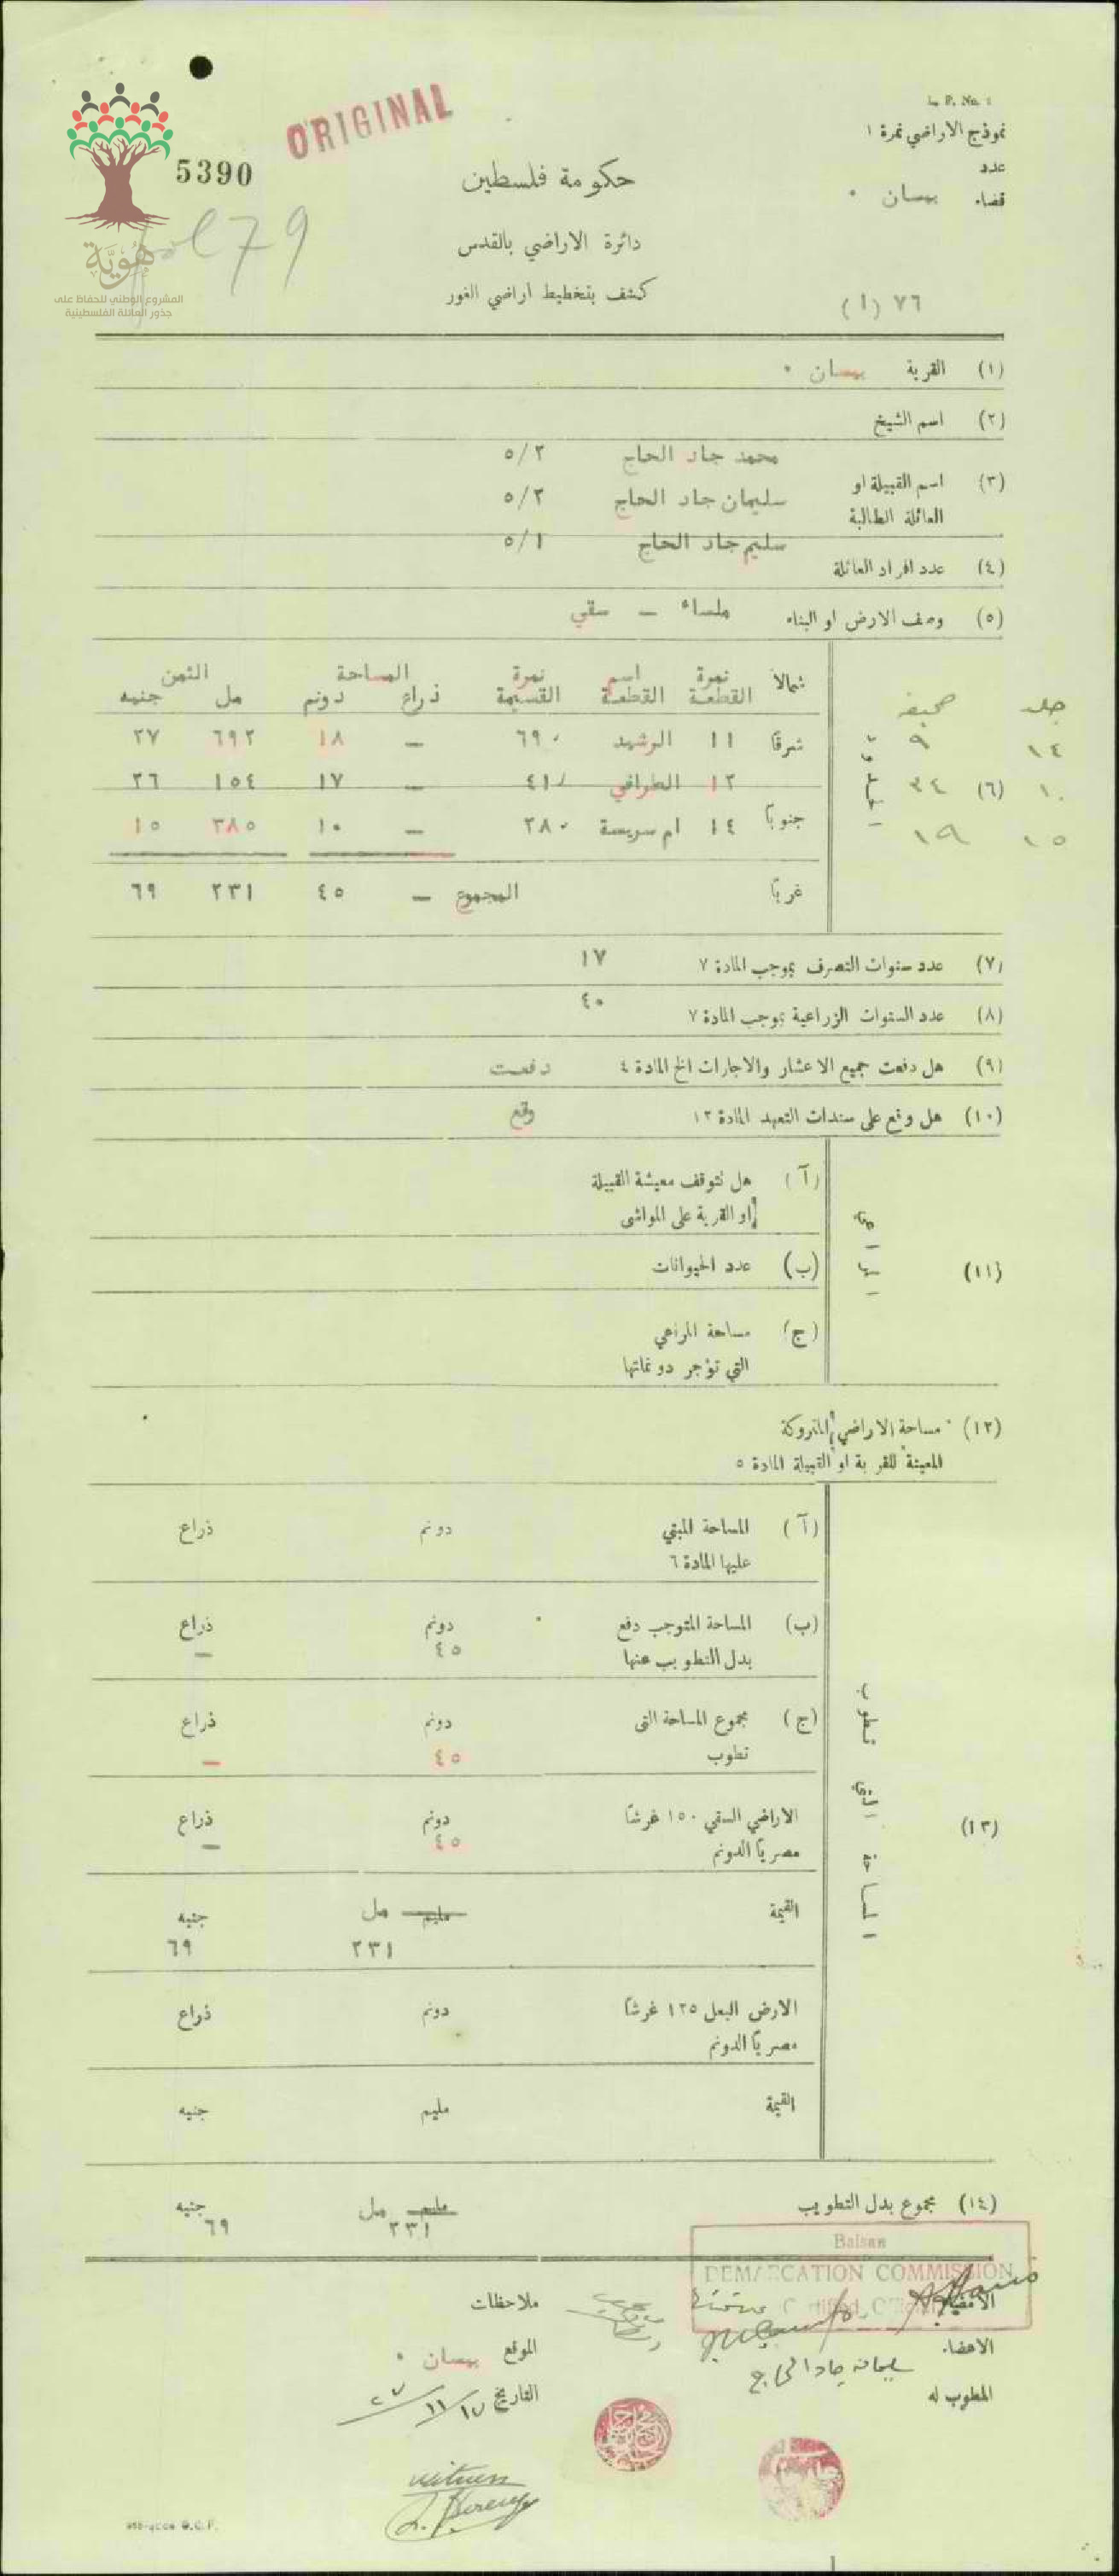 L. P. No. 1
نموذج الاراضي نمرة ١
ORIGINAL
5390
عدد
قضاء بيسان ٠
حكومة فلسطين
دائرة الاراضي بالقدس
كشف بتخطيط اراضي الغور
٧٦ (١)
79
هُوِيَّة
المشروع الوطني للحفاظ على
جذور العائلة الفلسطينية
(١) القرية بيسان ٠
(٢) اسم الشيخ
محمد جاد الحاج ٥/٢
(٣) اسم القبيلة او سليمان جاد الحاج ٥/٢
العائلة الطالبة
سليم جاد الحاج ٥/١
(٤) عدد افراد العائلة
(٥) وصف الارض او البناء ملساء — سقي
شمالاً نمرة القطعة اسم القطعة نمرة القسيمة المساحة ذراع دونم الثمن مل جنيه
جلد صحيفه
١٤ ٩ شرقاً ١١ الرشيد ٦٩٠ — ١٨ ٦٩٢ ٢٧
١٠ (٦) ٣٤ الحدود ١٢ الطرافي ٤١٠ — ١٧ ١٥٤ ٢٦
١٥ ١٩ جنوباً ١٤ ام سريسة ٢٨٠ — ١٠ ٣٨٥ ١٥
غرباً المجموع — ٤٥ ٢٣١ ٦٩
(٧) عدد سنوات التصرف بموجب المادة ٧ ١٧
(٨) عدد السنوات الزراعية بموجب المادة ٧ ٤٠
(٩) هل دفعت جميع الاعشار والاجارات الخ المادة ٤ دفعت
(١٠) هل وقع على سندات التعهد المادة ١٢ وقع
(١١) المراعي
(آ) هل تتوقف معيشة القبيلة
او القرية على المواشي
(ب) عدد الحيوانات
(ج) مساحة المراعي
التي تؤجر دونماتها
(١٢) مساحة الاراضي المتروكة
المعينة للقرية او القبيلة المادة ٥
(١٣) المساحة التي تطوب
(آ) المساحة المبني دونم ذراع
عليها المادة ٦
(ب) المساحة المتوجب دفع دونم ذراع
بدل التطويب عنها ٤٥ —
(ج) مجموع المساحة التي دونم ذراع
تطوب ٤٥ —
الاراضي السقي ١٥٠ غرشاً دونم ذراع
مصرياً الدونم ٤٥ —
القيمة مليم مل جنيه
٢٣١ ٦٩
الارض البعل ١٢٥ غرشاً دونم ذراع
مصرياً الدونم
القيمة مليم جنيه
(١٤) مجموع بدل التطويب مليم مل جنيه
٢٣١ ٦٩
Baisan
DEMARCATION COMMISSION
الامضاء
ملاحظات
الاعضاء
الموقع بيسان ٠
سليمان جاد الحاج
المطوب له
التاريخ ١٧/١١/٢٧
witness